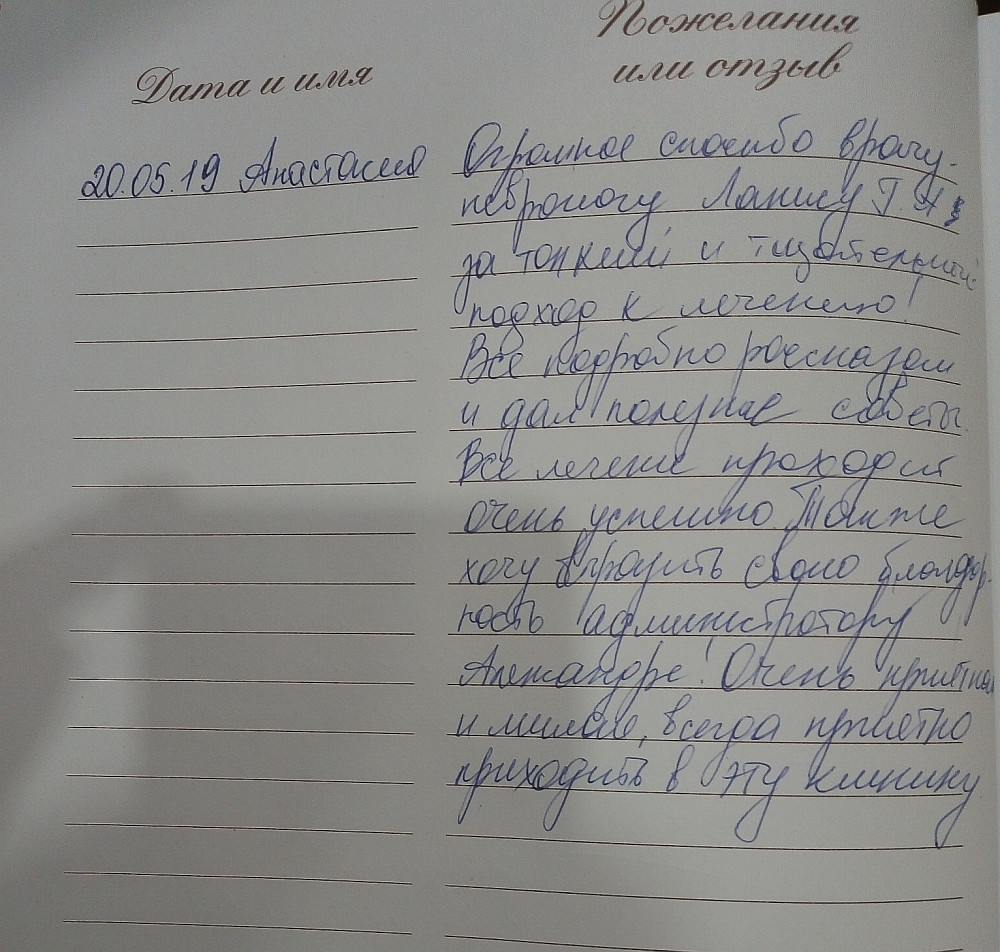 Пожелания
или отзыв
Дата и имя
20.05.19 Анастасия
Огромное спасибо врачу-
неврологу Т.А
за тонкий и тщательный
подход к лечению!
Все подробно рассказал
и дал полезные советы.
Все лечение проходит
очень успешно. Также
хочу выразить свою благодар-
ность администратору
Александре! Очень приятная
и милая, всегда приятно
приходить в эту клинику